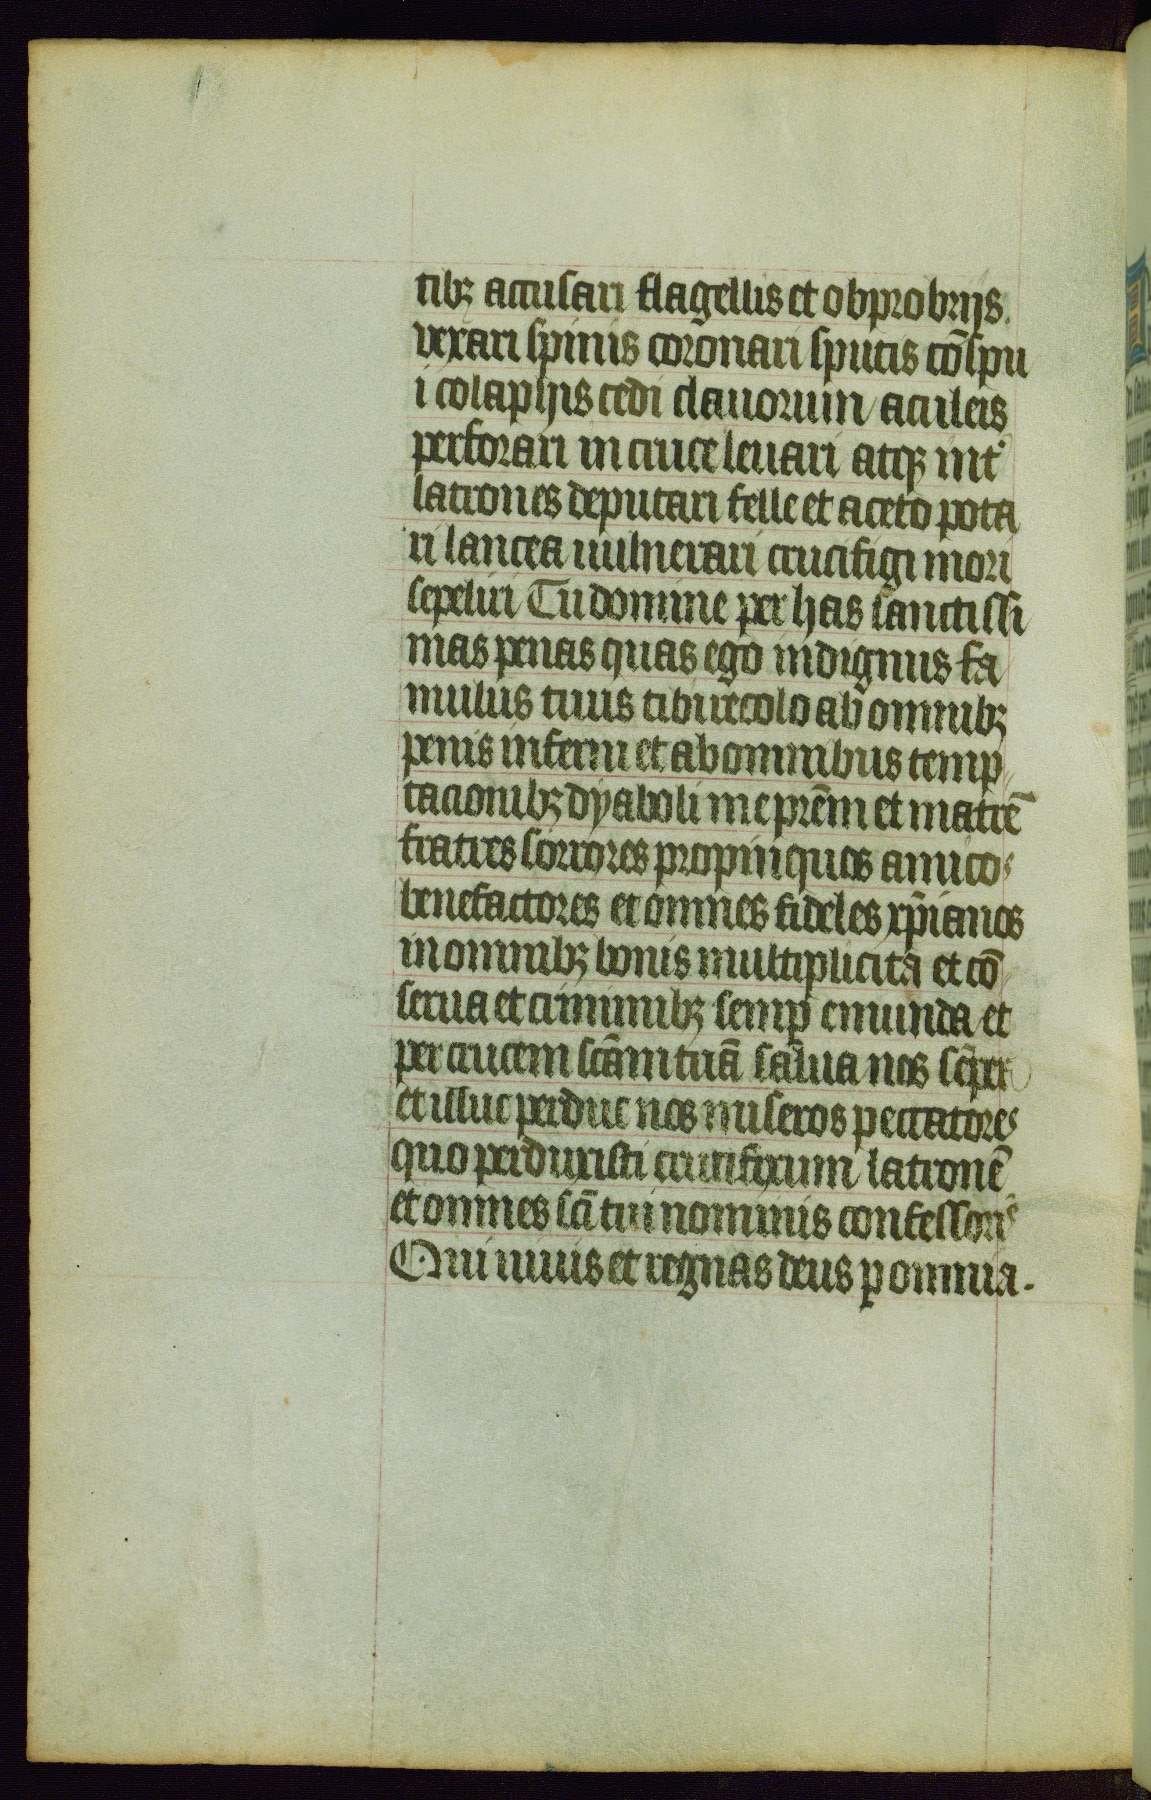 tibꝫ accusari flagellis et obprobrijs.
vexari spinis coronari sputis cōspu
i colaphis cedi clauorum aculeis
perforari in cruce leuari atqꝫ int᷑
latrones deputari felle et aceto pota
ri lancea uulnerari crucifigi mori
sepeliri Tu domine per has sanctissi
mas penas quas ego indignus fa
mulus tuus tibi recolo ab omnibꝫ
penis inferni et ab omnibus temp
tacionibꝫ dyaboli me prēm et matrē
fratres sorrores propinquos amicos
benefactores et omnes fideles xp̄ianos
in omnibꝫ bonis multiplicita et cō
serua et criminibꝫ semp̄ emunda et
per crucem scām tuā salua nos sēper
et illuc perduc nos miseros peccatores
quo perduxisti crucifixum latronē
et omnes scī tui nominis confessores
Qui uiuis et regnas deus ꝑ omnia.